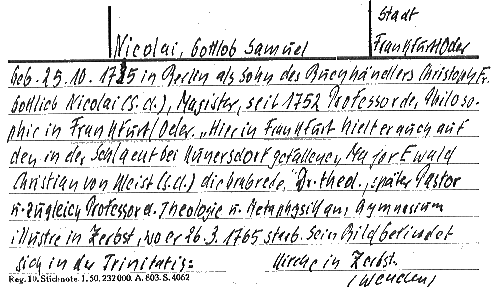 Stadt
Nicolai, Gottlob Samuel Frankfurt/Oder
geb. 25.10.1725 in Berlin als Sohn des Buchhändlers Christoph Fr.
Gottlieb Nicolai (s.d.), Magister, seit 1752 Professor de, Philoso-
phie in Frankfurt/Oder. „Hier in Frankfurt hielt er auch auf
den in der Schlacht bei Kunersdorf gefallenen Major Ewald
Christian von Kleist (s.d.) die Grabrede." Dr. theol., später Pastor
u. zugleich Professor d. Theologie u. Metaphysik am Gymnasium
illustre in Zerbst, wo er 26.3.1765 starb. Sein Bild befindet
sich in der Trinitatis= Kirche in Zerbst.
Reg. 10. Stichnote. 1. 50. 232 000. A. 603. S. 4062
(Wenden)